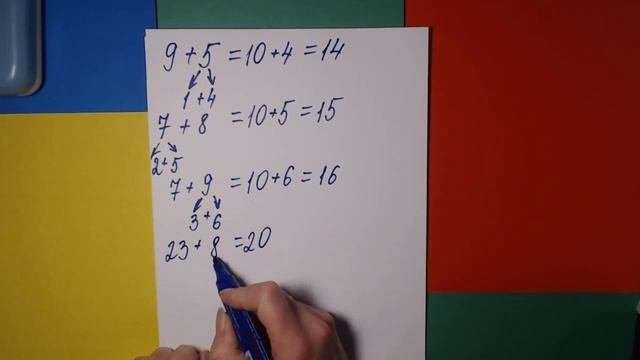 9 + 5 = 10 + 4 = 14
1 + 4
7 + 8 = 10 + 5 = 15
2 + 5
7 + 9 = 10 + 6 = 16
3 + 6
23 + 8 = 20